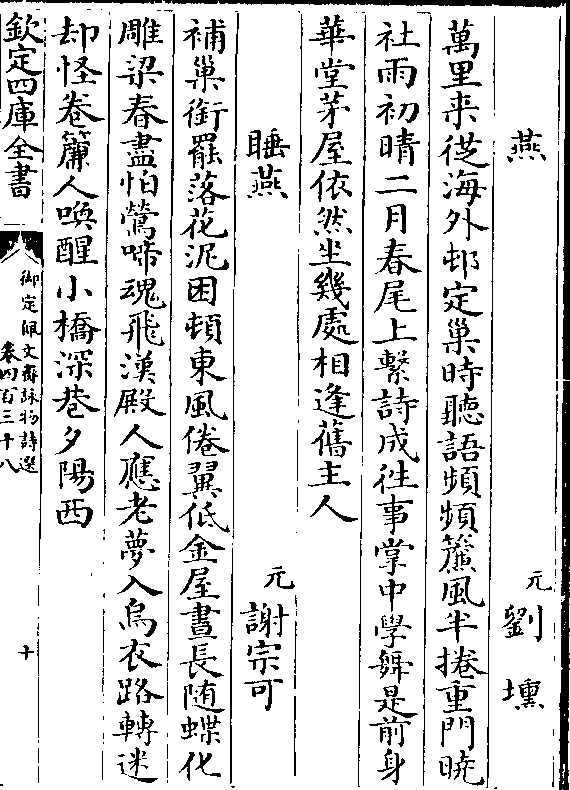 燕
元 劉壎
萬里来従海外邨定巢時聽語頻頻簾風半捲重門曉
社雨初晴二月春尾上繫詩成往事掌中學舞是前身
華堂茅屋依然坐幾處相逢舊主人
睡燕
元 謝宗可
補巢銜罷落花泥困頓東風倦翼低金屋晝長随蝶化
雕梁春盡怕鶯啼魂飛漢殿人應老夢入烏衣路轉迷
却怪卷簾人喚醒小橋深巷夕陽西
欽定四庫全書
御定佩文齋詠物詩選
卷四百三十八
十